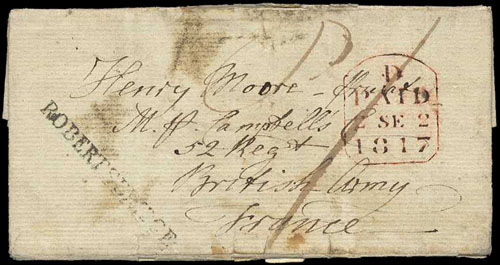 Henry Moore
M. H. Campbells
52 Regt
British Army
France
D
PAID
2 SE 2
1817